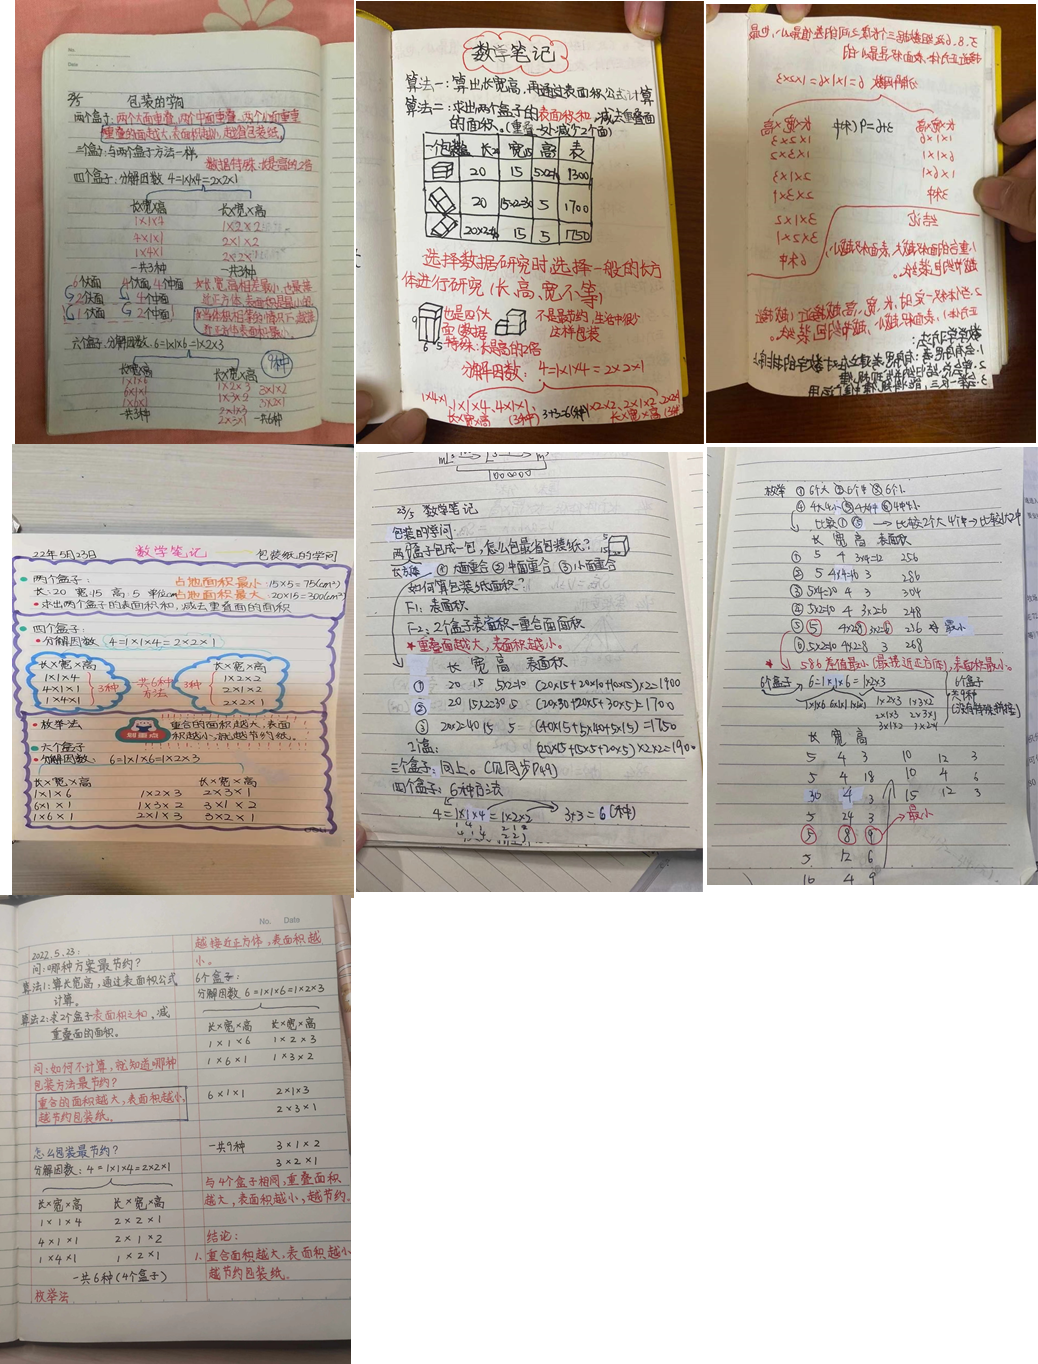 包装的学问
两个盒子:两个大面重叠,两个中面重叠,两个小面重叠
重叠的面越大,表面积越小,越省包装纸。
三个盒子:与两个盒子方法一样,
数据特殊:长是高的2倍
四个盒子:分解因数 4=1×1×4=2×2×1
长×宽×高 长×宽×高
1×1×4 1×2×2
4×1×1 2×1×2
1×4×1 2×2×1
一共3种 一共3种
6个大面 4个大面,4个中面
2个大面 4个中面
1个大面 2个中面
六个盒子:分解因数:6=1×1×6=1×2×3
9种
长×宽×高 长×宽×高
1×1×6 1×2×3 3×1×2
6×1×1 1×3×2 3×2×1
1×6×1 2×1×3
一共3种 2×3×1 一共6种
数学笔记
算法一:算出长宽高,再通过表面积公式计算
算法二:求出两个盒子的表面积和,减去重叠面
的面积。(重叠一处减少2个面)
长 宽 高 表
20 15 5×2=10 1300
20 15×2=30 5 1700
20×2=40 15 5 1750
选择数据研究时选择一般的长方
体进行研究(长、高、宽不等)
也是四个大面(数据
特殊:长是高的2倍
不是最节约,生活中很少
这样包装
9
6 5
分解因数:4=1×1×4=2×2×1
1×4×1,1×1×4,4×1×1, 3+3=6(种) 1×2×2, 2×1×2, 2×2×1
长×宽×高 (3种) 长×宽×高 (3种)
分解因数 6=1×1×6=1×2×3
长×宽×高 3+6=9(种) 长×宽×高
1×1×6 1×2×3
6×1×1 1×3×2
1×6×1 2×1×3
3种 2×3×1
3×1×2
3×2×1
6种
结论
1.重合的面积越大,表面积越小,
越节约包装纸。
22年5月23日 数学笔记 包装纸的学问
两个盒子: 占地面积最小:15×5=75(cm²)
长:20 宽:15 高:5 单位cm 占地面积最大:20×15=300(cm²)
求出两个盒子的表面积和,减去重叠面的面积
四个盒子:
分解因数 4=1×1×4=2×2×1
长×宽×高 长×宽×高
1×1×4 1×2×2
4×1×1 3种 一共6种方法 3种 2×1×2
1×4×1 2×2×1
枚举法 划重点 重合的面积越大,表面
积越小,就越节约纸。
六个盒子
分解因数: 6=1×1×6=1×2×3
长×宽×高 长×宽×高
1×1×6 1×2×3 2×3×1
6×1×1 1×3×2 3×1×2
1×6×1 2×1×3 3×2×1
23/5 数学笔记
包装的学问:
两个盒子包成一包,怎么包最省包装纸?
长方体 ①大面重合 ②中面重合 ③小面重合
如何算包装纸面积?
F1:表面积
F2:2个盒子表面积-重合面面积
*重叠面越大,表面积越小。
长 宽 高 表面积
① 20 15 5×2=10 (20×15+20×10+10×15)×2=1300
② 20 15×2=30 5 (20×30+20×5+30×5)×2=1700
③ 20×2=40 15 5 (40×15+5×40+5×15)×2=1750
2个盒: (20×15+15×5+20×5)×2×2=1900
三个盒子:同上。(见同步P49)
四个盒子:6种方法
4=1×1×4=1×2×2 3+3=6(种)
枚举 ①6个大 ②6个中 ③6个小
④4大4小 ⑤4大4中 ⑥4中4小
比较①⑤→比较2个大4个中→比较大2中
长 宽 高 表面积
① 5 4 3×4=12 256
② 5 4×4=16 3 286
③ 5×4=20 4 3 304
④ 5×2=10 4 3×2=6 248
⑤ 5 4×2=8 3×2=6 236 最小
⑥ 5×2=10 4×2=8 3 268
* 5 8 6差值最小(最接近正方体),表面积最小。
6个盒子 6=1×1×6=1×2×3 6个盒子
1×1×6 6×1×1 1×6×1 1×2×3 1×3×2 共9种
2×1×3 2×3×1
3×1×2 3×2×1
长 宽 高
5 4 3 10 12 3
5 4 18 10 4 6
30 4 3 15 12 3
5 24 3
5 8 9 最小
5 12 6
10 4 9
No. Date
2022.5.23:
问:哪种方案最节约?
算法1:算长宽高,通过表面积公式
计算。
算法2:求2个盒子表面积之和,减
重叠面的面积。
问:如何不计算,就知道哪种
包装方法最节约?
重合的面积越大,表面积越小,
越节约包装纸。
怎么包装最节约?
分解因数:4=1×1×4=2×2×1
长×宽×高 长×宽×高
1×1×4 2×2×1
4×1×1 2×1×2
1×4×1 1×2×1
一共6种(4个盒子)
枚举法
越接近正方体,表面积越
小。
6个盒子:
分解因数 6=1×1×6=1×2×3
长×宽×高 长×宽×高
1×1×6 1×2×3
1×6×1 1×3×2
6×1×1 2×1×3
2×3×1
一共9种 3×1×2
3×2×1
与4个盒子相同,重叠面积
越大,表面积越小,越节约。
结论:
1.重合面积越大,表面积越小
越节约包装纸。